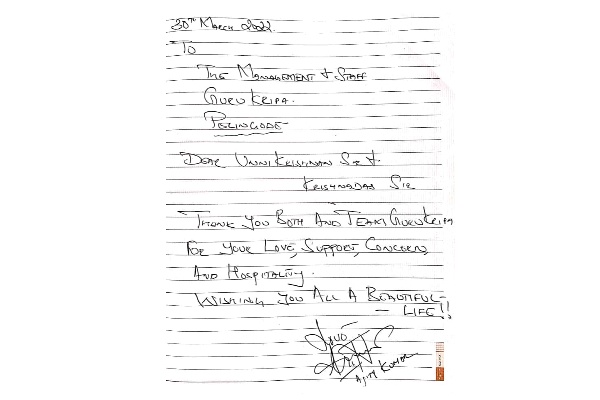 30th March 2022
To
The Management & Staff
GuruKripa.
Peringode
Dear UnniKrishnan Sir &
Krishnadas Sir
Thank You Both And Team GuruKripa
For Your Love, Support, Concern,
And Hospitality.
Wishing You All A Beautiful
– Life!!
Ajith Kumar